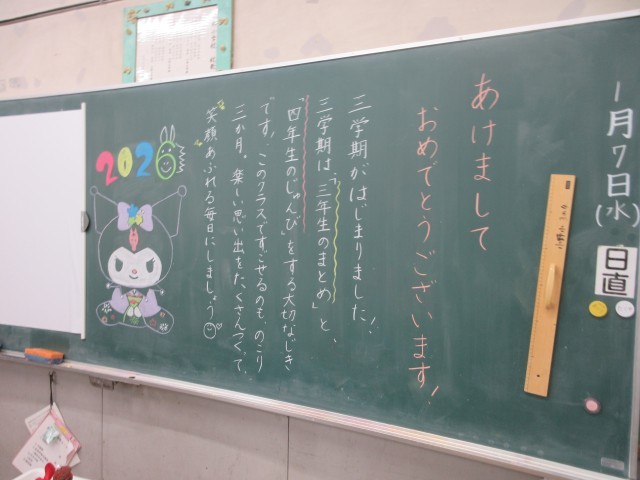 1月7日(水)
日直
あけまして
おめでとうございます!
三学期がはじまりました!
三学期は、「三年生のまとめ」と、
「四年生のじゅんび」をする大切なじき
です!このクラスですごせるのも、のこり
三か月。楽しい思い出をたくさんつくって、
笑顔あふれる毎日にしましょう
2026